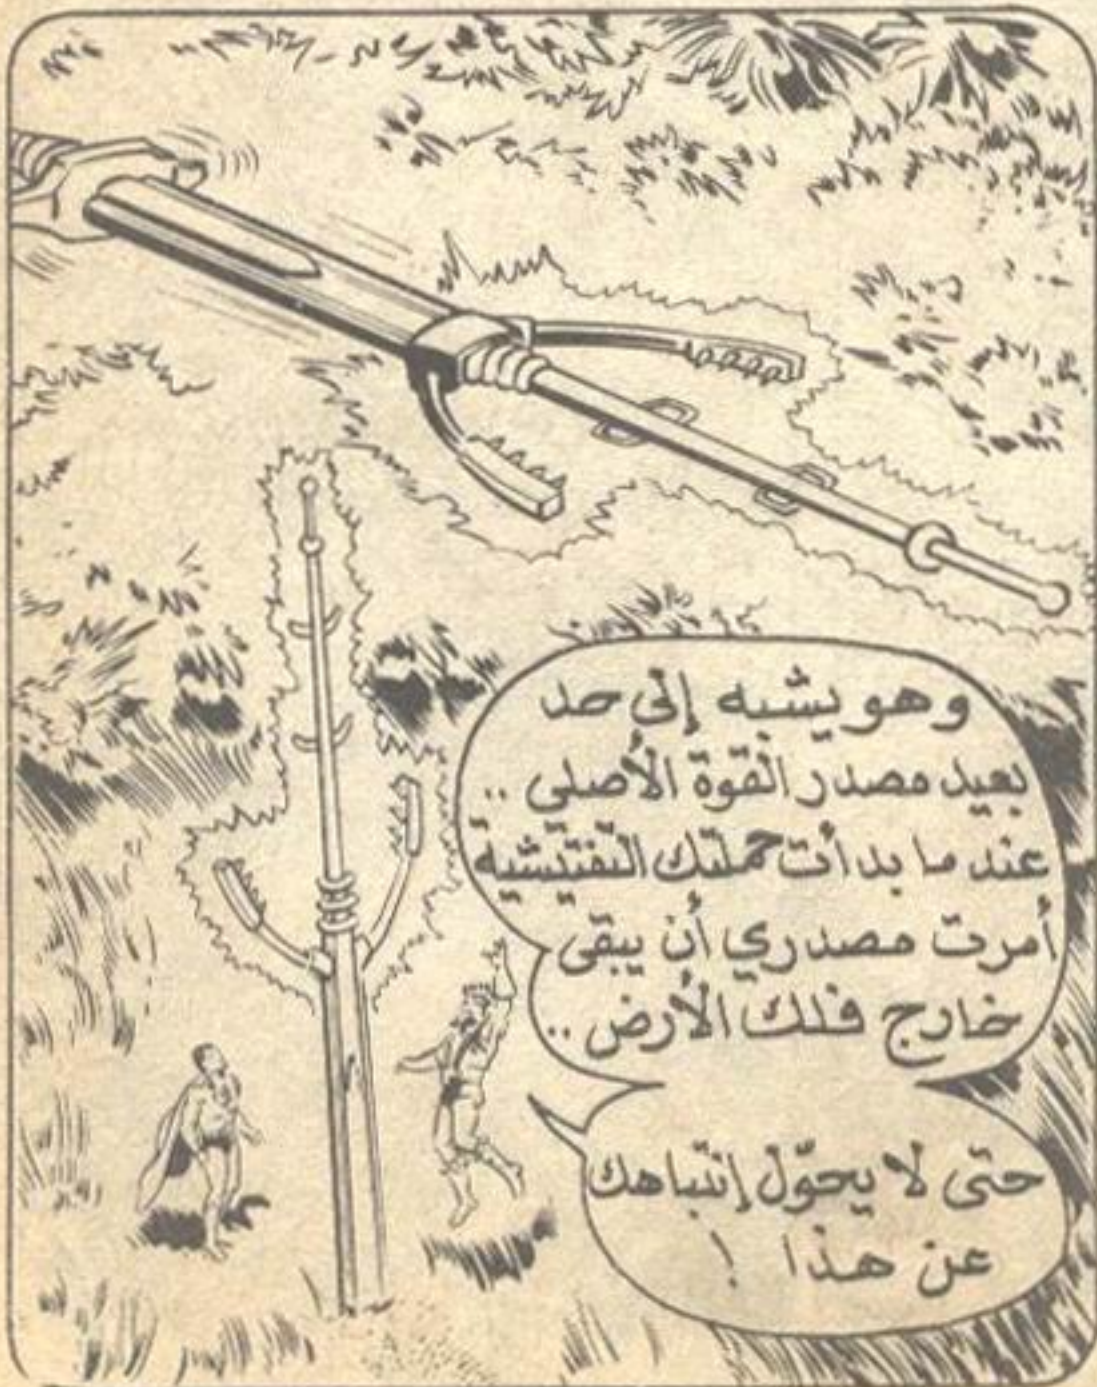 وهو يشبه إلى حد
بعيد مصدر القوة الأصلي ..
عند ما بدأت حملتك التفتيشية
أمرت مصدري أن يبقى
خارج فلك الأرض ..
حتى لا يحوّل إنتباهك
عن هذا !